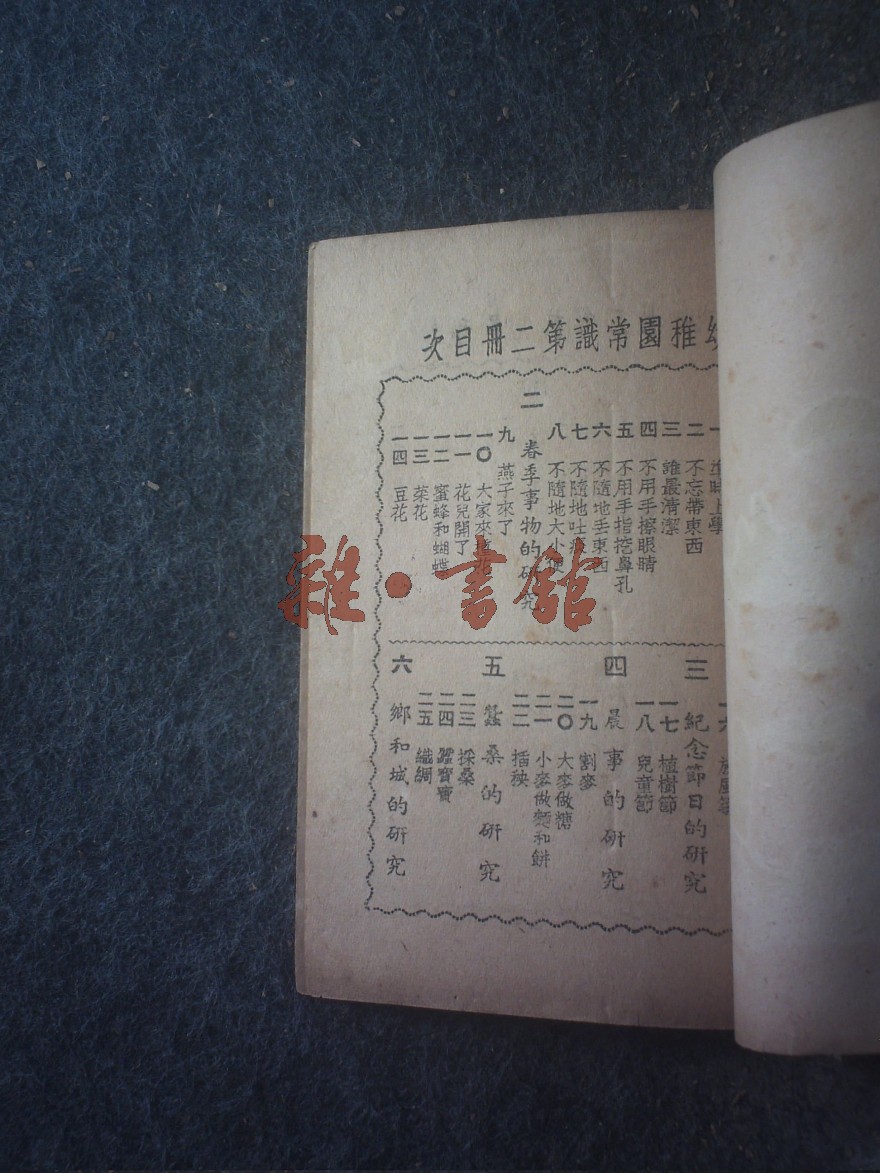 稚園常識第二冊目次
二 不忘帶東西
三 誰最清潔
四 不用手擦眼睛
五 不用手指挖鼻孔
六 不隨地丟東西
七 不隨地吐
八 不隨地大小便
二 春季事物的研究
九 燕子來了
一〇 大家來
一一 花兒開了
一二 蜜蜂和蝴蝶
一三 菜花
一四 豆花
三 紀念節日的研究
一七 植樹節
一八 兒童節
四 農事的研究
一九 割麥
二〇 大麥做糖
二一 小麥做麵和餅
二二 插秧
五 蠶桑的研究
二三 採桑
二四 蠶寶寶
二五 織綢
六 鄉和城的研究
雜·書館